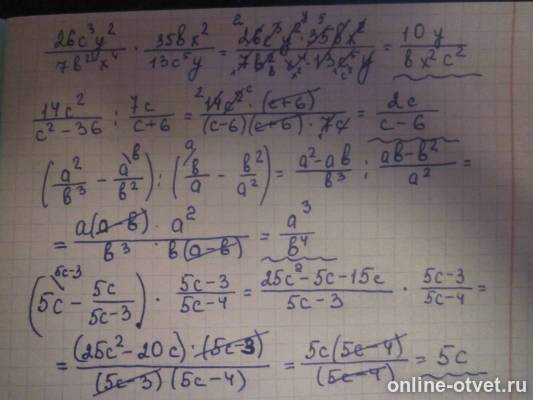 26c³y²/7b²x⁴ · 35bx²/13c⁵y = 26c³y²·35bx²/7b²x⁴·13c⁵y = 10y/bx²c²
14c²/c²-36 : 7c/c+6 = 14c²·(c+6)/(c-6)(c+6)·7c = 2c/c-6
(a²/b³ - a/b²) : (b/a - b²/a²) = a²-ab/b³ : ab-b²/a² =
= a(a-b)·a²/b³·b(a-b) = a³/b⁴
(5c - 5c/5c-3) · 5c-3/5c-4 = 25c²-5c-15c/5c-3 · 5c-3/5c-4 =
= (25c²-20c)·(5c-3)/(5c-3)(5c-4) = 5c(5c-4)/(5c-4) = 5c
online-otvet.ru